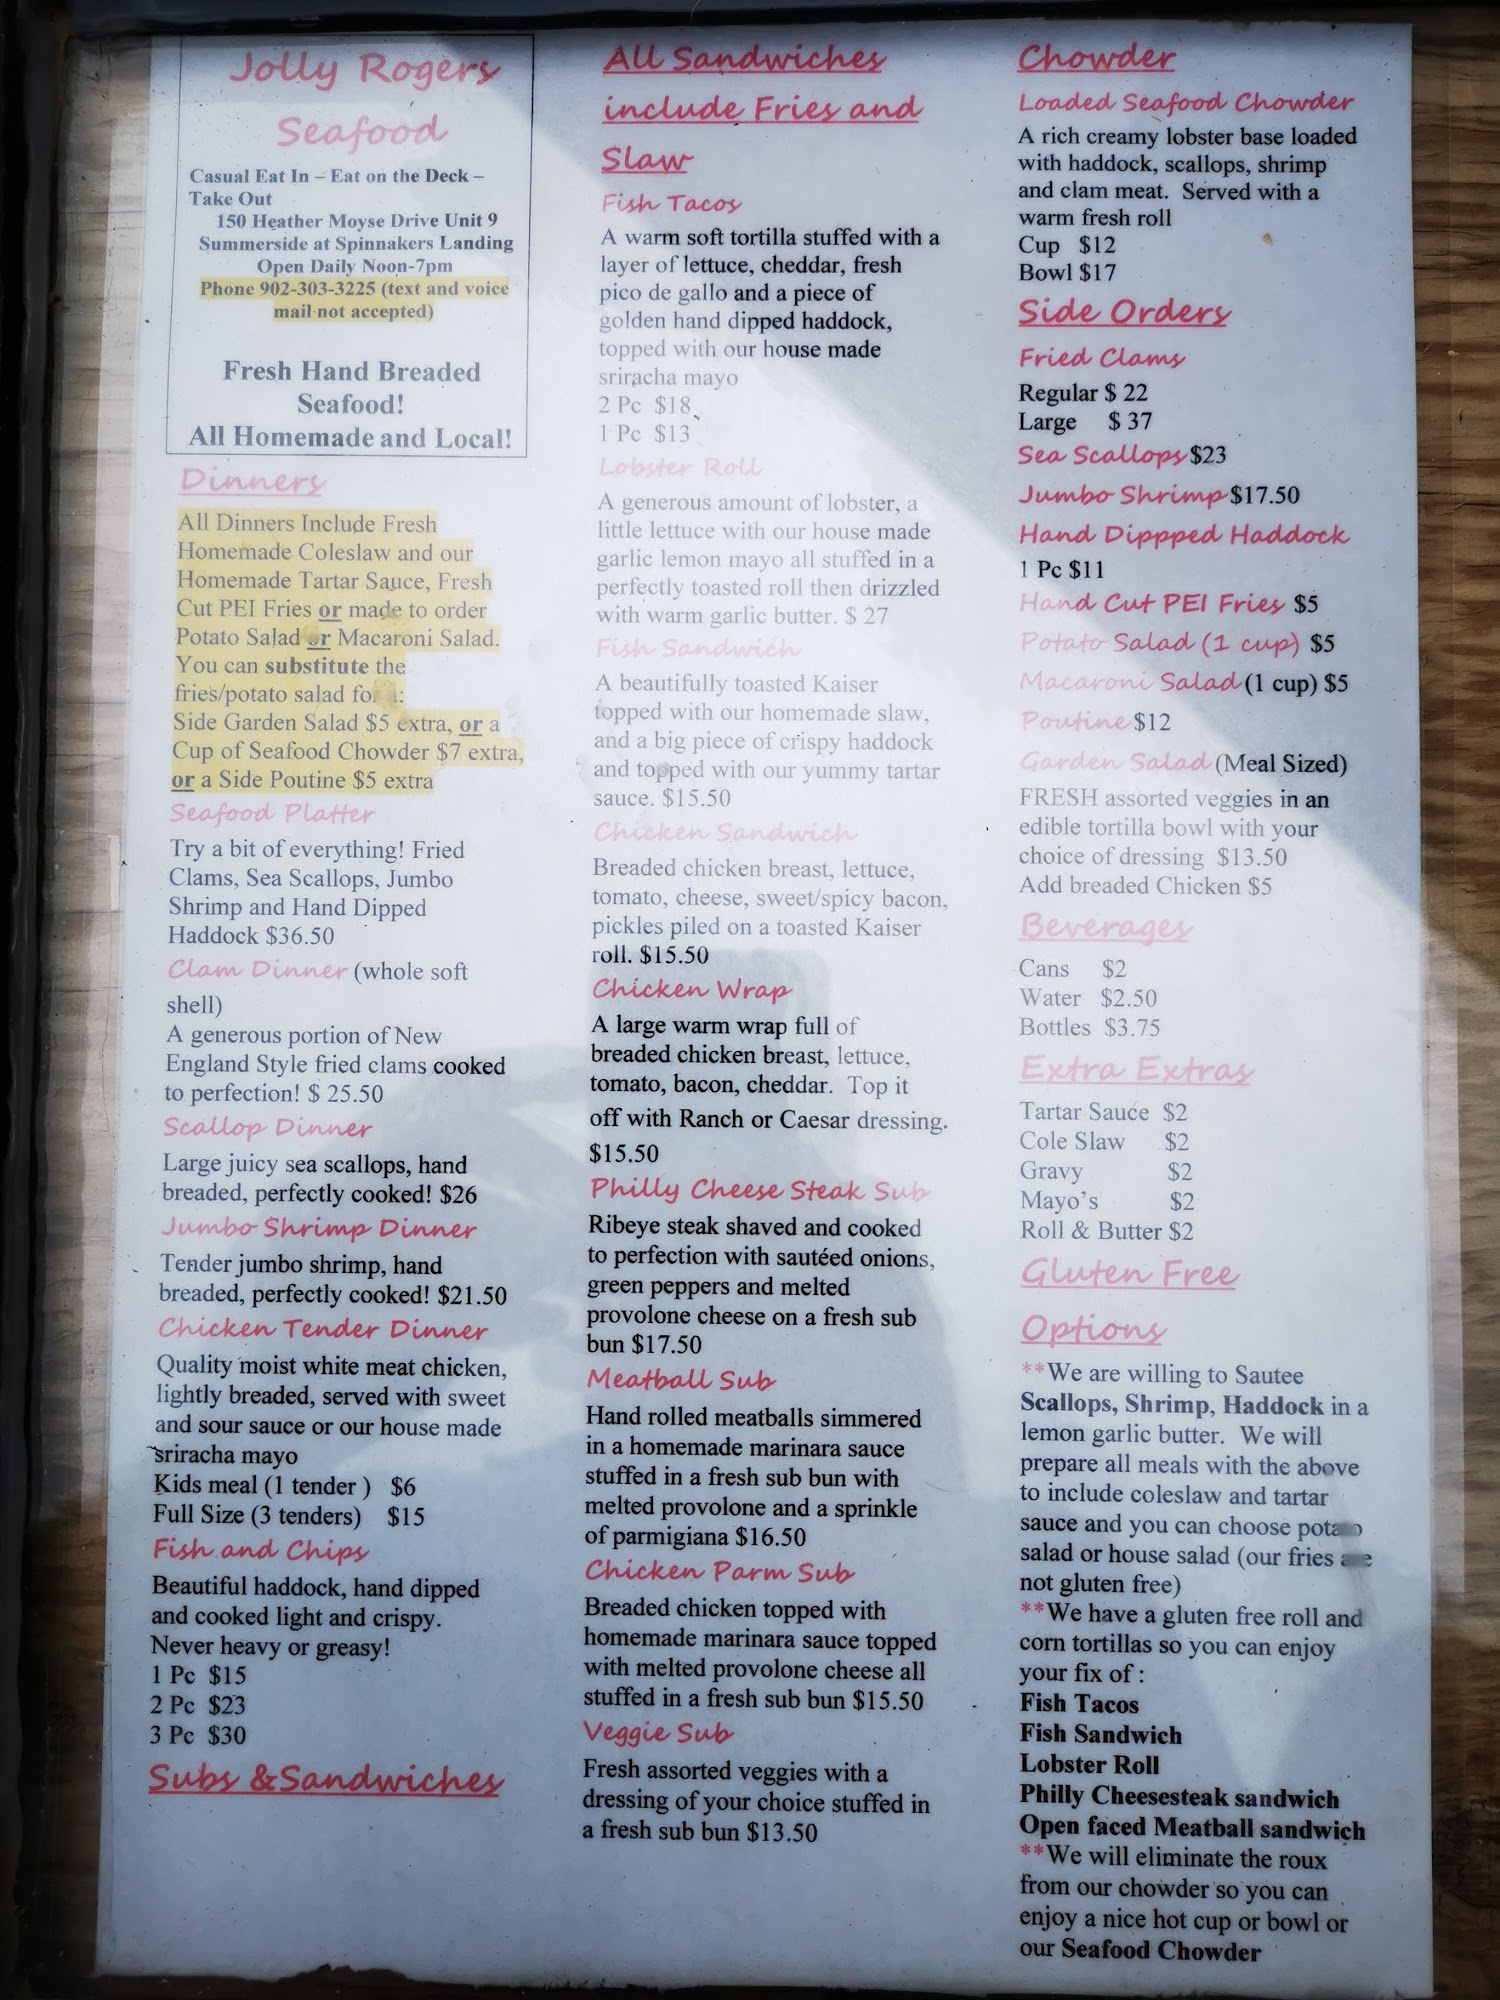 Jolly Rogers
Seafood
Casual Eat In – Eat on the Deck –
Take Out
150 Heather Moyse Drive Unit 9
Summerside at Spinnakers Landing
Open Daily Noon-7pm
Phone 902-303-3225 (text and voice
mail not accepted)
Fresh Hand Breaded
Seafood!
All Homemade and Local!
Dinners
All Dinners Include Fresh
Homemade Coleslaw and our
Homemade Tartar Sauce, Fresh
Cut PEI Fries or made to order
Potato Salad or Macaroni Salad.
You can substitute the
fries/potato salad for a:
Side Garden Salad $5 extra, or a
Cup of Seafood Chowder $7 extra,
or a Side Poutine $5 extra
Seafood Platter
Try a bit of everything! Fried
Clams, Sea Scallops, Jumbo
Shrimp and Hand Dipped
Haddock $36.50
Clam Dinner (whole soft
shell)
A generous portion of New
England Style fried clams cooked
to perfection! $ 25.50
Scallop Dinner
Large juicy sea scallops, hand
breaded, perfectly cooked! $26
Jumbo Shrimp Dinner
Tender jumbo shrimp, hand
breaded, perfectly cooked! $21.50
Chicken Tender Dinner
Quality moist white meat chicken,
lightly breaded, served with sweet
and sour sauce or our house made
sriracha mayo
Kids meal (1 tender ) $6
Full Size (3 tenders) $15
Fish and Chips
Beautiful haddock, hand dipped
and cooked light and crispy.
Never heavy or greasy!
1 Pc $15
2 Pc $23
3 Pc $30
Subs &Sandwiches
All Sandwiches
include Fries and
Slaw
Fish Tacos
A warm soft tortilla stuffed with a
layer of lettuce, cheddar, fresh
pico de gallo and a piece of
golden hand dipped haddock,
topped with our house made
sriracha mayo
2 Pc $18
1 Pc $13
Lobster Roll
A generous amount of lobster, a
little lettuce with our house made
garlic lemon mayo all stuffed in a
perfectly toasted roll then drizzled
with warm garlic butter. $ 27
Fish Sandwich
A beautifully toasted Kaiser
topped with our homemade slaw,
and a big piece of crispy haddock
and topped with our yummy tartar
sauce. $15.50
Chicken Sandwich
Breaded chicken breast, lettuce,
tomato, cheese, sweet/spicy bacon,
pickles piled on a toasted Kaiser
roll. $15.50
Chicken Wrap
A large warm wrap full of
breaded chicken breast, lettuce,
tomato, bacon, cheddar. Top it
off with Ranch or Caesar dressing.
$15.50
Philly Cheese Steak Sub
Ribeye steak shaved and cooked
to perfection with sautéed onions,
green peppers and melted
provolone cheese on a fresh sub
bun $17.50
Meatball Sub
Hand rolled meatballs simmered
in a homemade marinara sauce
stuffed in a fresh sub bun with
melted provolone and a sprinkle
of parmigiana $16.50
Chicken Parm Sub
Breaded chicken topped with
homemade marinara sauce topped
with melted provolone cheese all
stuffed in a fresh sub bun $15.50
Veggie Sub
Fresh assorted veggies with a
dressing of your choice stuffed in
a fresh sub bun $13.50
Chowder
Loaded Seafood Chowder
A rich creamy lobster base loaded
with haddock, scallops, shrimp
and clam meat. Served with a
warm fresh roll
Cup $12
Bowl $17
Side Orders
Fried Clams
Regular $ 22
Large $ 37
Sea Scallops $23
Jumbo Shrimp $17.50
Hand Dippped Haddock
1 Pc $11
Hand Cut PEI Fries $5
Potato Salad (1 cup) $5
Macaroni Salad (1 cup) $5
Poutine $12
Garden Salad (Meal Sized)
FRESH assorted veggies in an
edible tortilla bowl with your
choice of dressing $13.50
Add breaded Chicken $5
Beverages
Cans $2
Water $2.50
Bottles $3.75
Extra Extras
Tartar Sauce $2
Cole Slaw $2
Gravy $2
Mayo's $2
Roll & Butter $2
Gluten Free
Options
**We are willing to Sautee
Scallops, Shrimp, Haddock in a
lemon garlic butter. We will
prepare all meals with the above
to include coleslaw and tartar
sauce and you can choose potato
salad or house salad (our fries are
not gluten free)
**We have a gluten free roll and
corn tortillas so you can enjoy
your fix of :
Fish Tacos
Fish Sandwich
Lobster Roll
Philly Cheesesteak sandwich
Open faced Meatball sandwich
**We will eliminate the roux
from our chowder so you can
enjoy a nice hot cup or bowl or
our Seafood Chowder